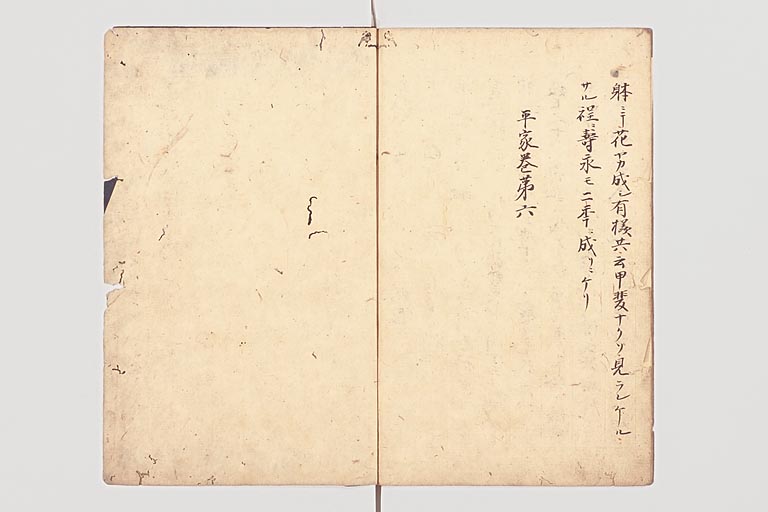 躰ニテ花ヤカ成シ有様共云甲斐ナクソ見ラレケル
サル程ニ壽永モ二季ニ成リニケリ
平家巻第六